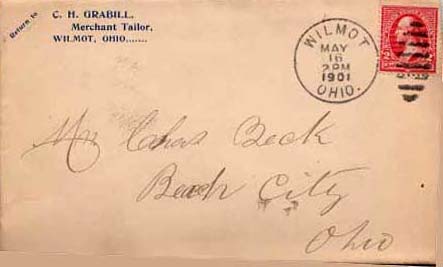 Return to
C. H. GRABILL,
Merchant Tailor,
WILMOT, OHIO.......
WILMOT
MAY
16
2 PM
1901
OHIO.
Mr Beck
Beach City
Ohio